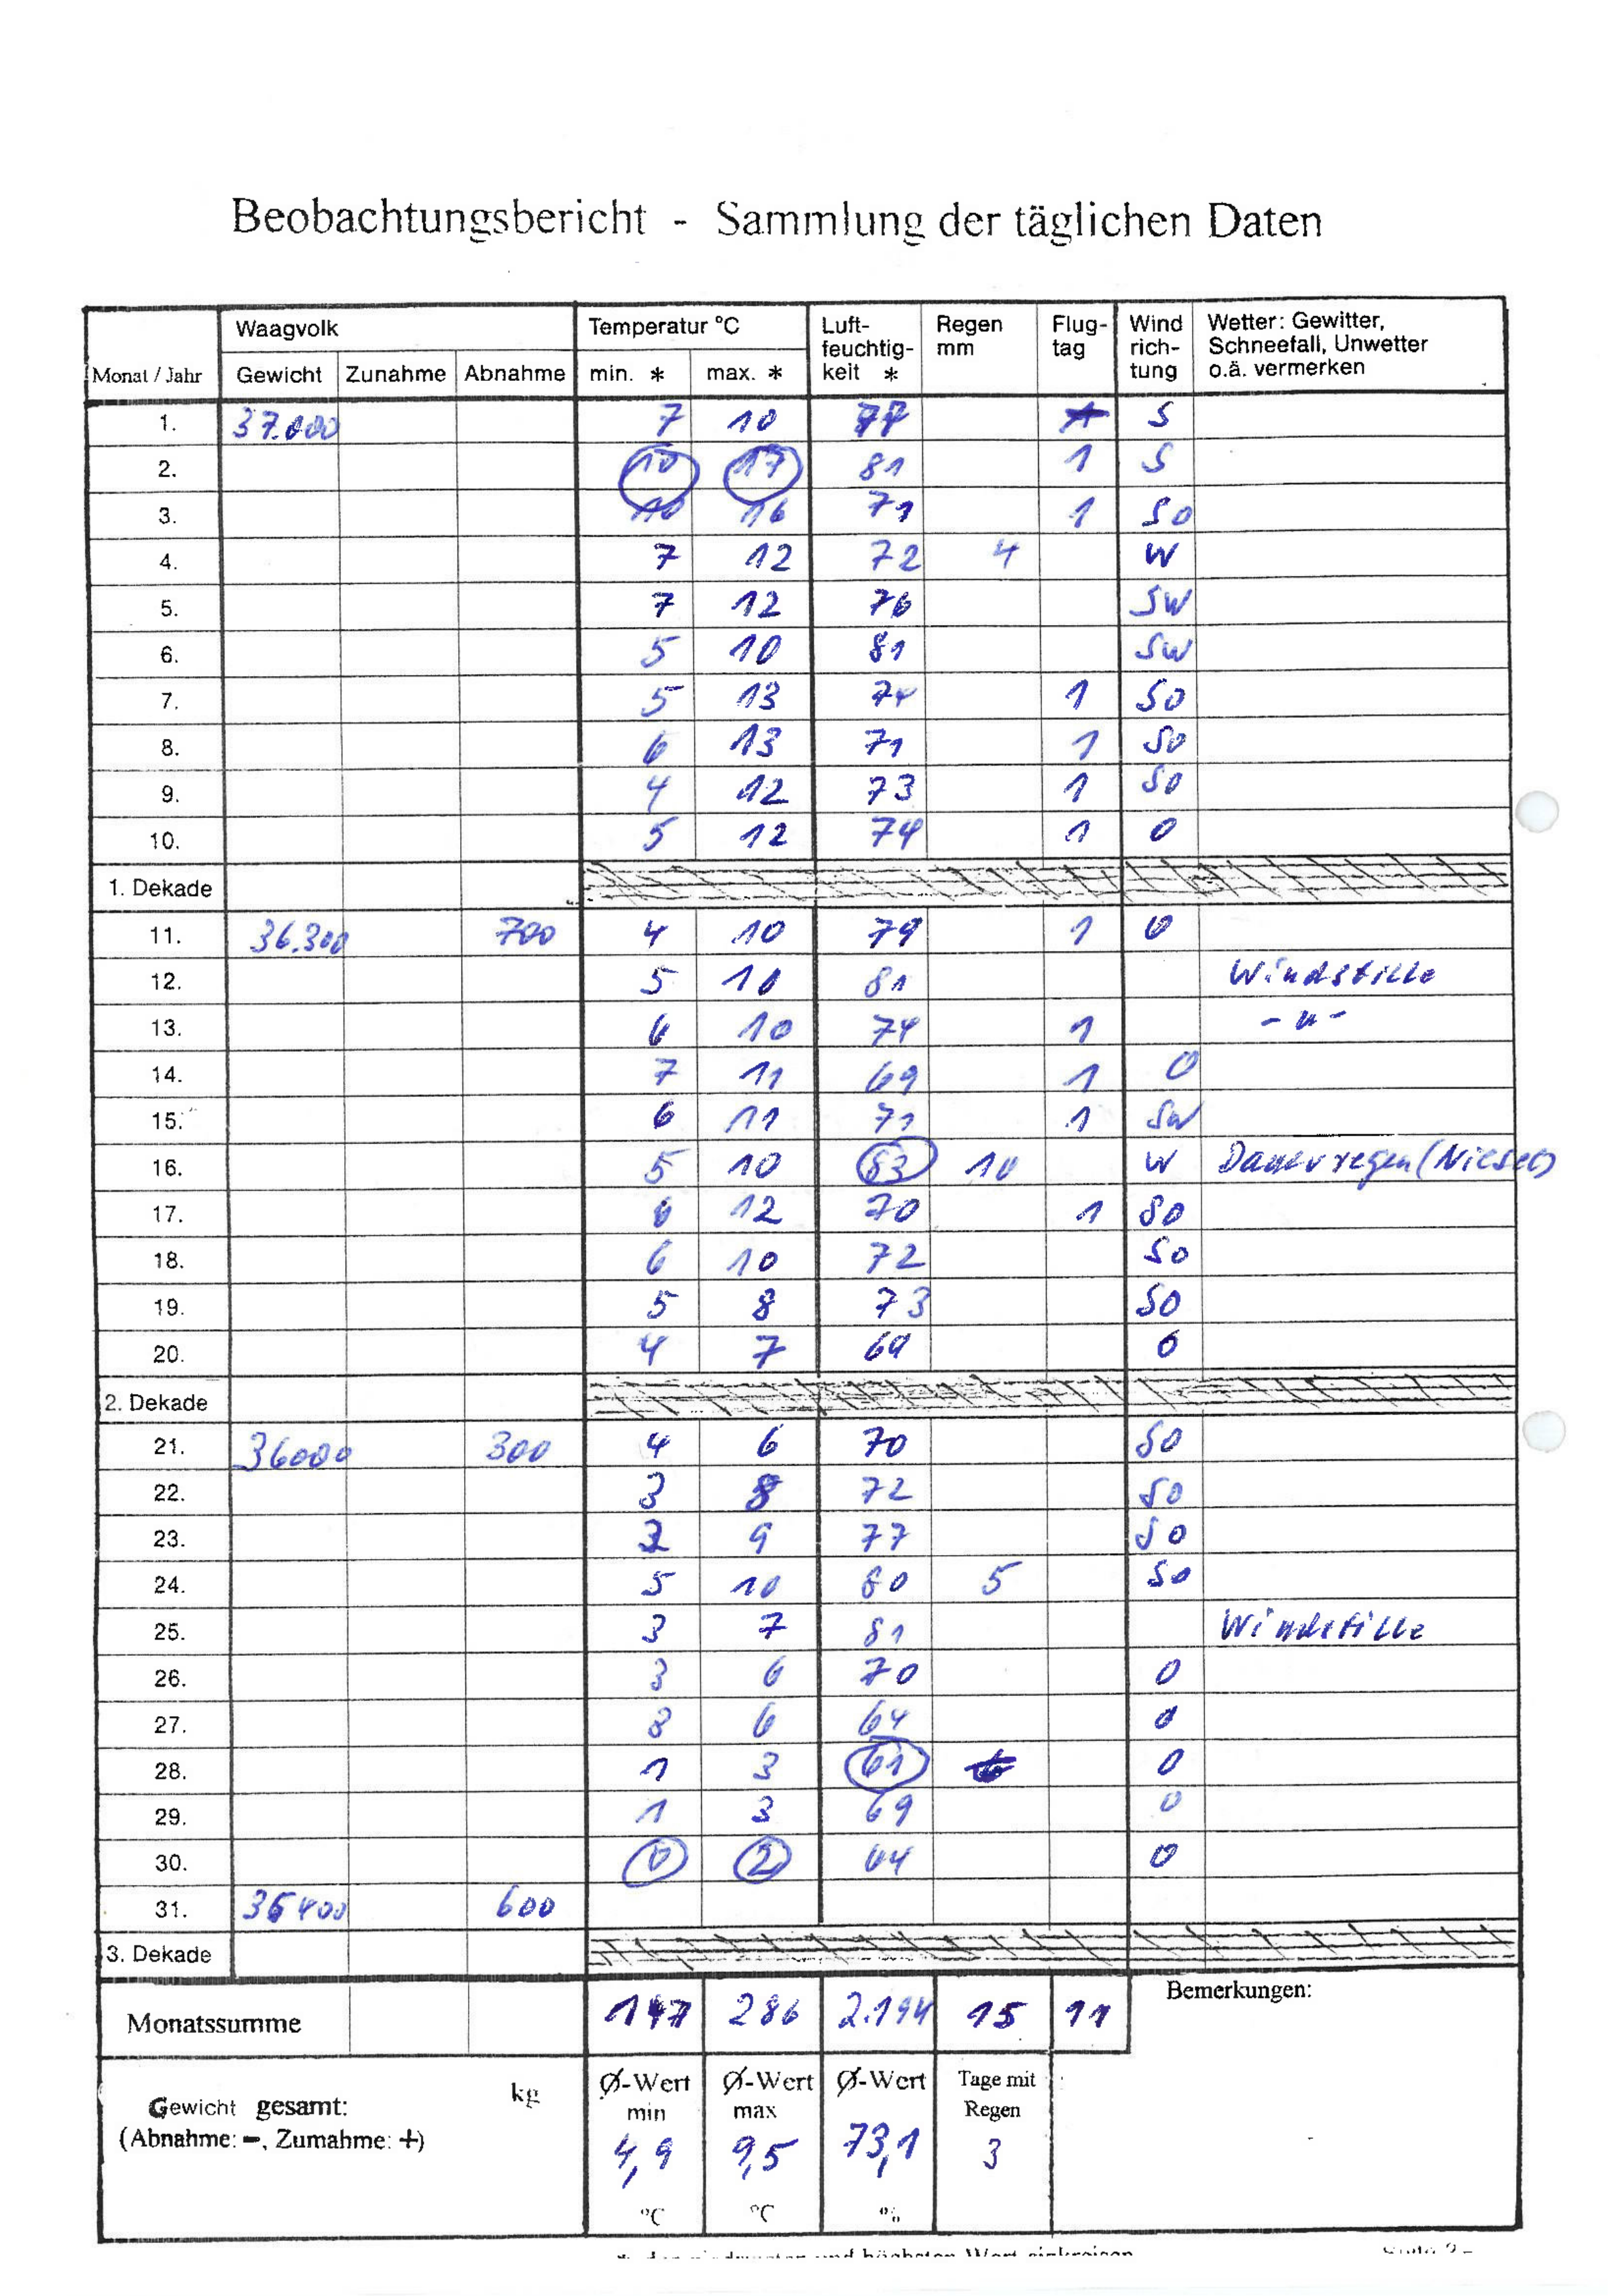 Beobachtungsbericht - Sammlung der täglichen Daten
Monat / Jahr Waagvolk Temperatur °C Luft-feuchtig-keit * Regen mm Flug-tag Wind rich-tung Wetter: Gewitter, Schneefall, Unwetter o.ä. vermerken
Gewicht Zunahme Abnahme min. * max. *
1. 37.000 7 10 S
2. 10 17 81 1 S
3. 10 16 71 1 SO
4. 7 12 72 4 W
5. 7 12 76 SW
6. 5 10 81 SW
7. 5 13 74 1 SO
8. 6 13 71 1 SO
9. 4 12 73 1 SO
10. 5 12 74 1 O
1. Dekade
11. 36.300 700 4 10 79 1 O
12. 5 10 81 Windstille
13. 6 10 74 1 - " -
14. 7 11 69 1 O
15. 6 11 71 1 SW
16. 5 10 83 10 W Dauerregen (Niesel)
17. 6 12 70 1 SO
18. 6 10 72 SO
19. 5 8 73 SO
20. 4 7 69 O
2. Dekade
21. 36000 300 4 6 70 SO
22. 3 8 72 SO
23. 9 77 SO
24. 5 10 80 5 SO
25. 3 7 81 Windstille
26. 3 6 70 O
27. 6 64 O
28. 1 3 61 O
29. 1 3 69 O
30. 0 2 64 O
31. 35400 600
3. Dekade
Monatssumme 147 286 2.194 15 11 Bemerkungen:
Gewicht gesamt: kg
(Abnahme: -, Zumahme: +)
Ø-Wert min 4,9 °C
Ø-Wert max 9,5 °C
Ø-Wert 73,1 %
Tage mit Regen 3